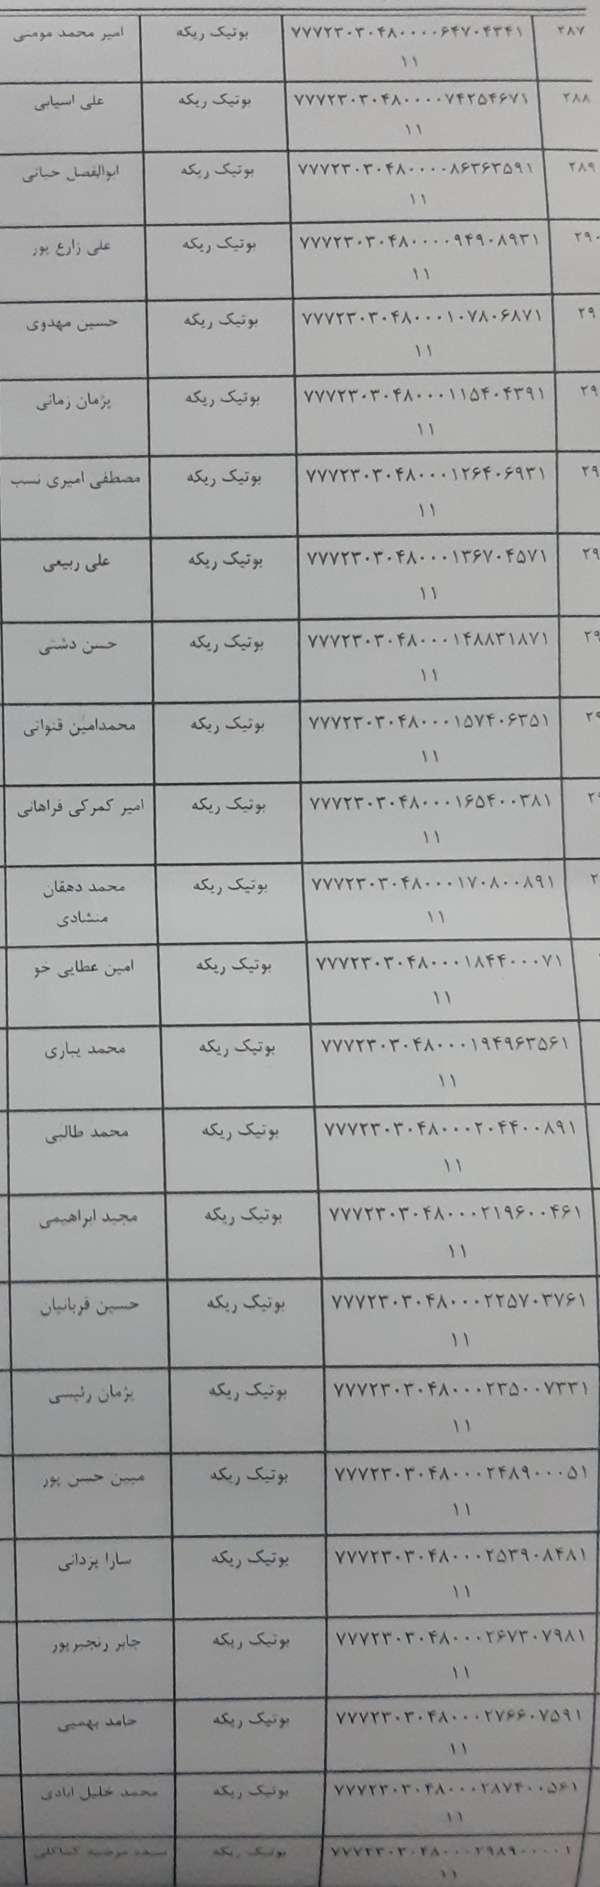 ۲۸۷ ۷۷۷۲۳۰۳۰۴۸۰۰۰۰۶۴۷۰۴۳۴۱ بوتیک ریکه امیر محمد مومنی
۱۱
۲۸۸ ۷۷۷۲۳۰۳۰۴۸۰۰۰۰۷۴۲۵۴۶۷۱ بوتیک ریکه علی اسیابی
۱۱
۲۸۹ ۷۷۷۲۳۰۳۰۴۸۰۰۰۰۸۶۳۶۳۵۹۱ بوتیک ریکه ابوالفضل حیاتی
۱۱
۲۹۰ ۷۷۷۲۳۰۳۰۴۸۰۰۰۰۹۴۹۰۸۹۳۱ بوتیک ریکه علی زارع پور
۱۱
۲۹ ۷۷۷۲۳۰۳۰۴۸۰۰۰۱۰۷۸۰۶۸۷۱ بوتیک ریکه حسین مهدوی
۱۱
۲۹ ۷۷۷۲۳۰۳۰۴۸۰۰۰۱۱۵۴۰۴۳۹۱ بوتیک ریکه پژمان زمانی
۱۱
۲۹ ۷۷۷۲۳۰۳۰۴۸۰۰۰۱۲۶۴۰۶۹۳۱ بوتیک ریکه مصطفی امیری نسب
۱۱
۲۹ ۷۷۷۲۳۰۳۰۴۸۰۰۰۱۳۶۷۰۴۵۷۱ بوتیک ریکه علی ربیعی
۱۱
۲۹ ۷۷۷۲۳۰۳۰۴۸۰۰۰۱۴۸۸۳۱۸۷۱ بوتیک ریکه حسن دشتی
۱۱
۲۹ ۷۷۷۲۳۰۳۰۴۸۰۰۰۱۵۷۴۰۶۳۵۱ بوتیک ریکه محمدامین قنواتی
۱۱
۲۹ ۷۷۷۲۳۰۳۰۴۸۰۰۰۱۶۵۴۰۰۳۸۱ بوتیک ریکه امیر کمرکی فراهانی
۱۱
۲ ۷۷۷۲۳۰۳۰۴۸۰۰۰۱۷۰۸۰۰۸۹۱ بوتیک ریکه محمد دهقان
۱۱ منشادی
۷۷۷۲۳۰۳۰۴۸۰۰۰۱۸۴۴۰۰۰۷۱ بوتیک ریکه امین عطایی خو
۱۱
۷۷۷۲۳۰۳۰۴۸۰۰۰۱۹۴۹۶۳۵۶۱ بوتیک ریکه محمد یباری
۱۱
۷۷۷۲۳۰۳۰۴۸۰۰۰۲۰۴۴۰۰۸۹۱ بوتیک ریکه محمد طالبی
۱۱
۷۷۷۲۳۰۳۰۴۸۰۰۰۲۱۹۶۰۰۴۶۱ بوتیک ریکه مجید ابراهیمی
۱۱
۷۷۷۲۳۰۳۰۴۸۰۰۰۲۲۵۷۰۳۷۶۱ بوتیک ریکه حسین قربانیان
۱۱
۷۷۷۲۳۰۳۰۴۸۰۰۰۲۳۵۰۰۷۳۳۱ بوتیک ریکه پژمان رئیسی
۱۱
۷۷۷۲۳۰۳۰۴۸۰۰۰۲۴۸۹۰۰۰۵۱ بوتیک ریکه مبین حسن پور
۱۱
۷۷۷۲۳۰۳۰۴۸۰۰۰۲۵۳۹۰۸۴۸۱ بوتیک ریکه سارا یزدانی
۱۱
۷۷۷۲۳۰۳۰۴۸۰۰۰۲۶۷۳۰۷۹۸۱ بوتیک ریکه جابر رنجبرپور
۱۱
۷۷۷۲۳۰۳۰۴۸۰۰۰۲۷۶۶۰۷۵۹۱ بوتیک ریکه حامد بهمیی
۱۱
۷۷۷۲۳۰۳۰۴۸۰۰۰۲۸۷۴۰۰۵۶۱ بوتیک ریکه محمد خلیل ابادی
۱۱
۷۷۷۲۳۰۳۰۴۸۰۰۰۲۹۸۹۰۰۰۰۱ بوتیک ریکه
۱۱